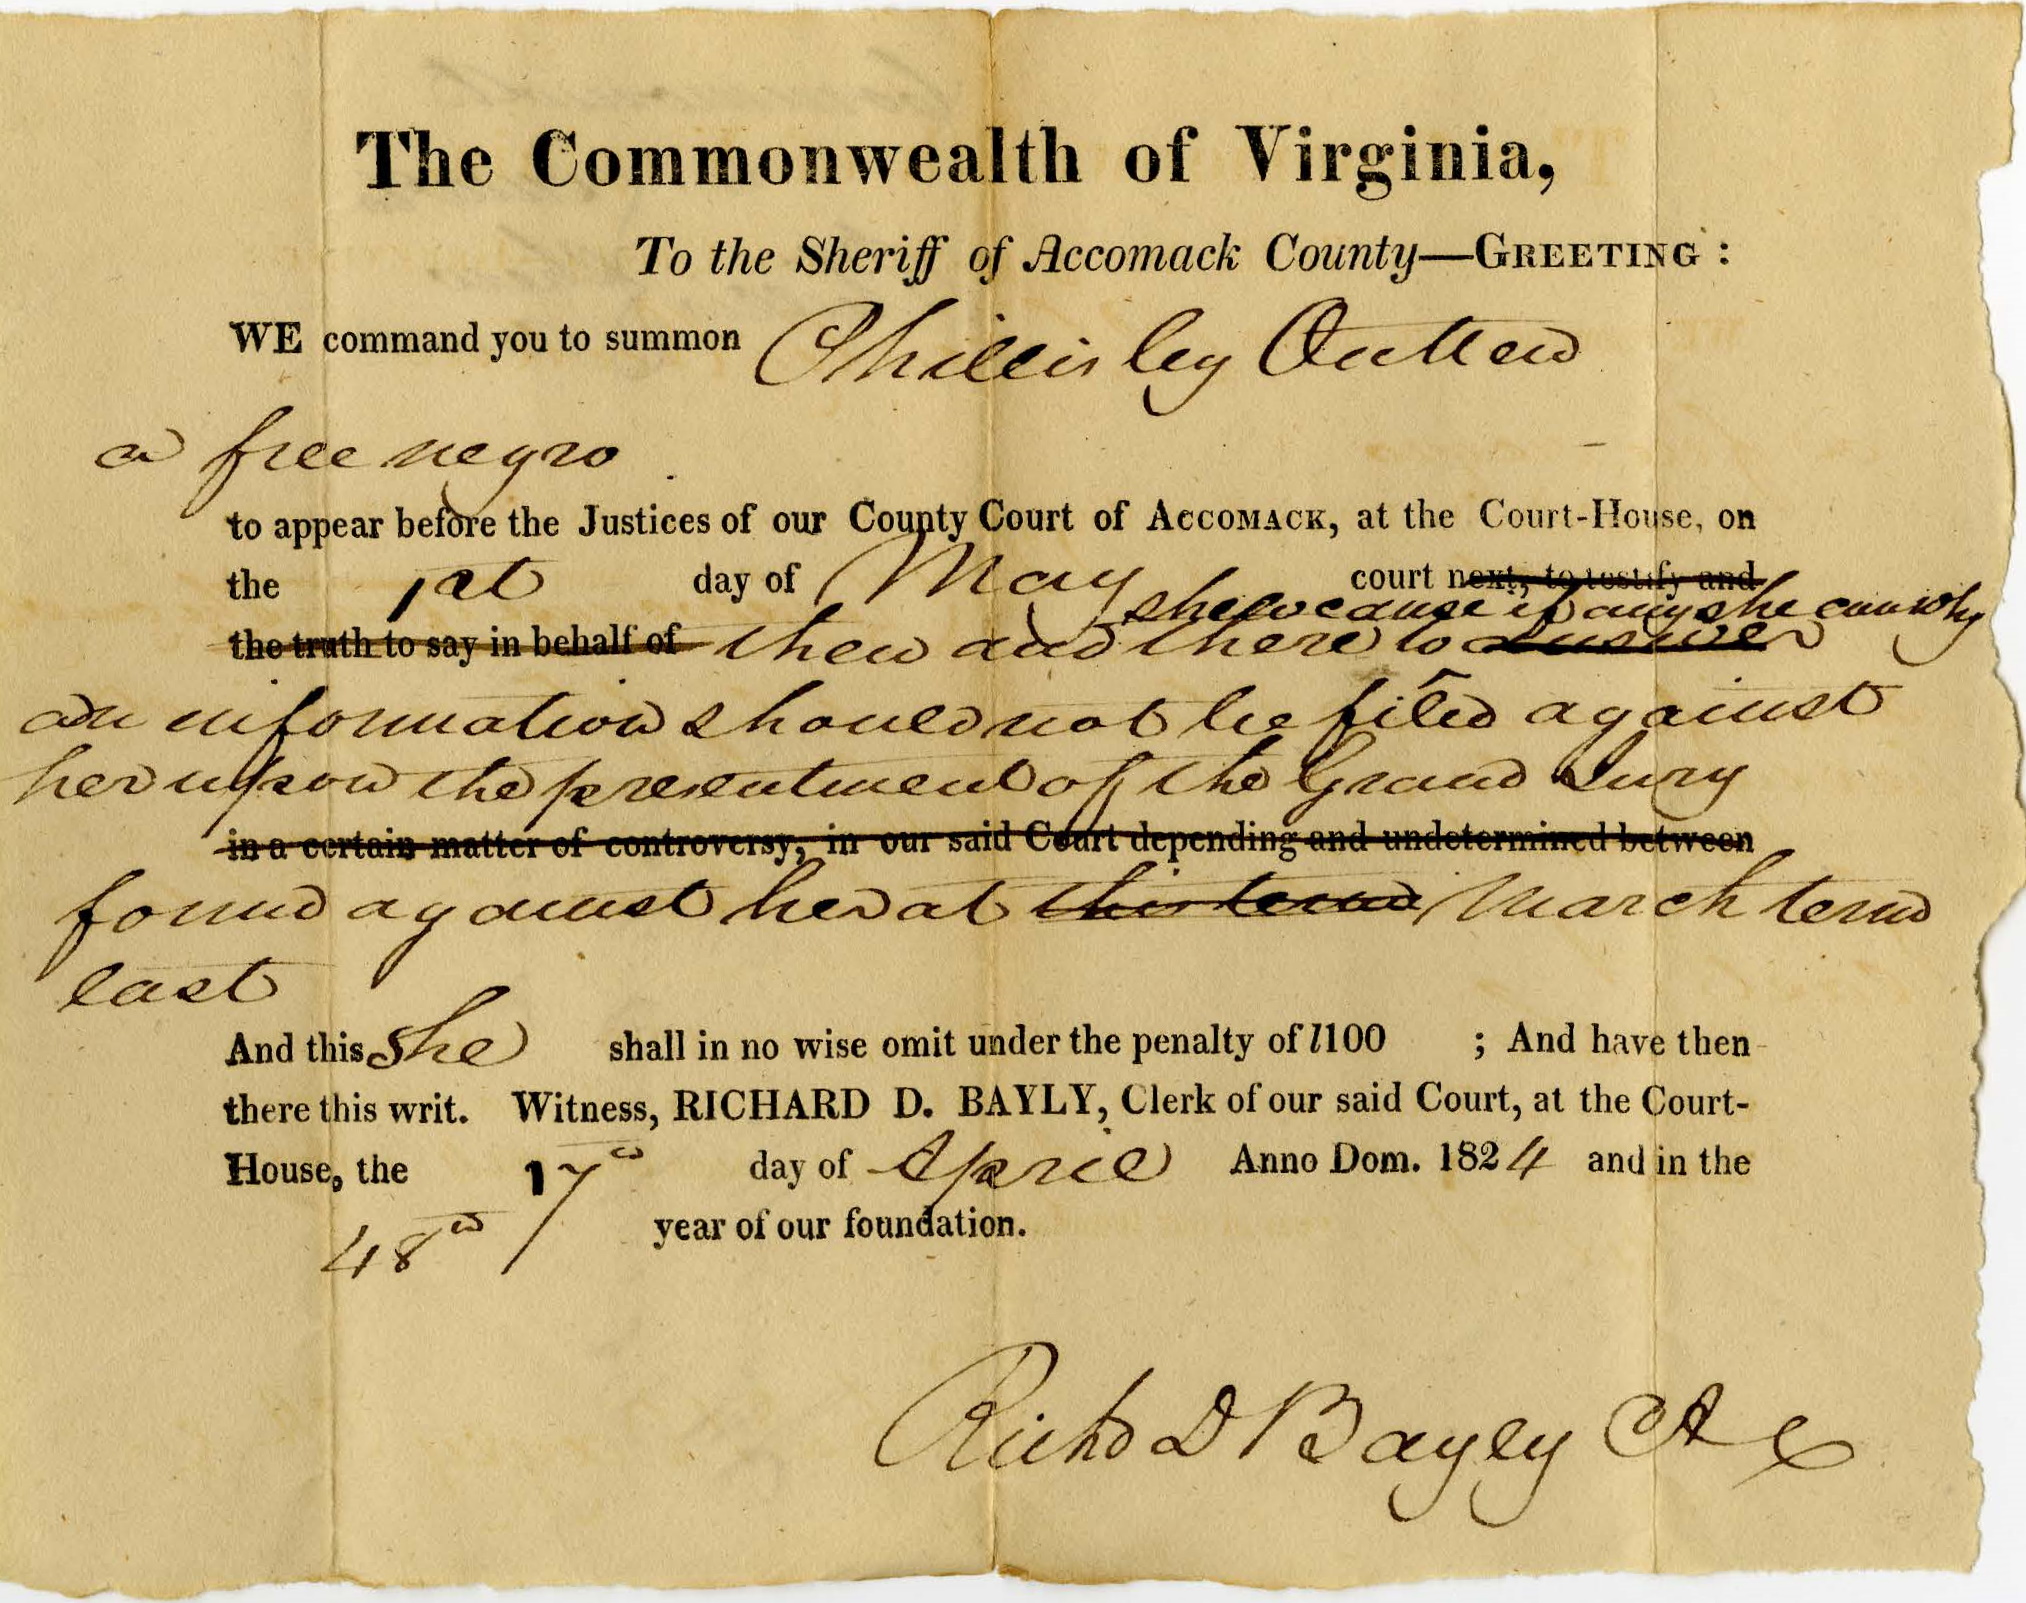 The Commonwealth of Virginia,
To the Sheriff of Accomack County—GREETING:
WE command you to summon Phillis by Outten
a free negro
to appear before the Justices of our County Court of ACCOMACK, at the Court-House, on
the 1st day of May court next, to testify and
shew cause if any she can why
the truth to say in behalf of then and there to answer
an information should not be filed against
her upon the presentment of the Grand Jury
in a certain matter of controversy, in our said Court depending and undetermined between
found against her at this term March term
last
And this she shall in no wise omit under the penalty of l100 ; And have then
there this writ. Witness, RICHARD D. BAYLY, Clerk of our said Court, at the Court-
House, the 17th day of April Anno Dom. 1824 and in the
48th year of our foundation.
Richd D Bayly